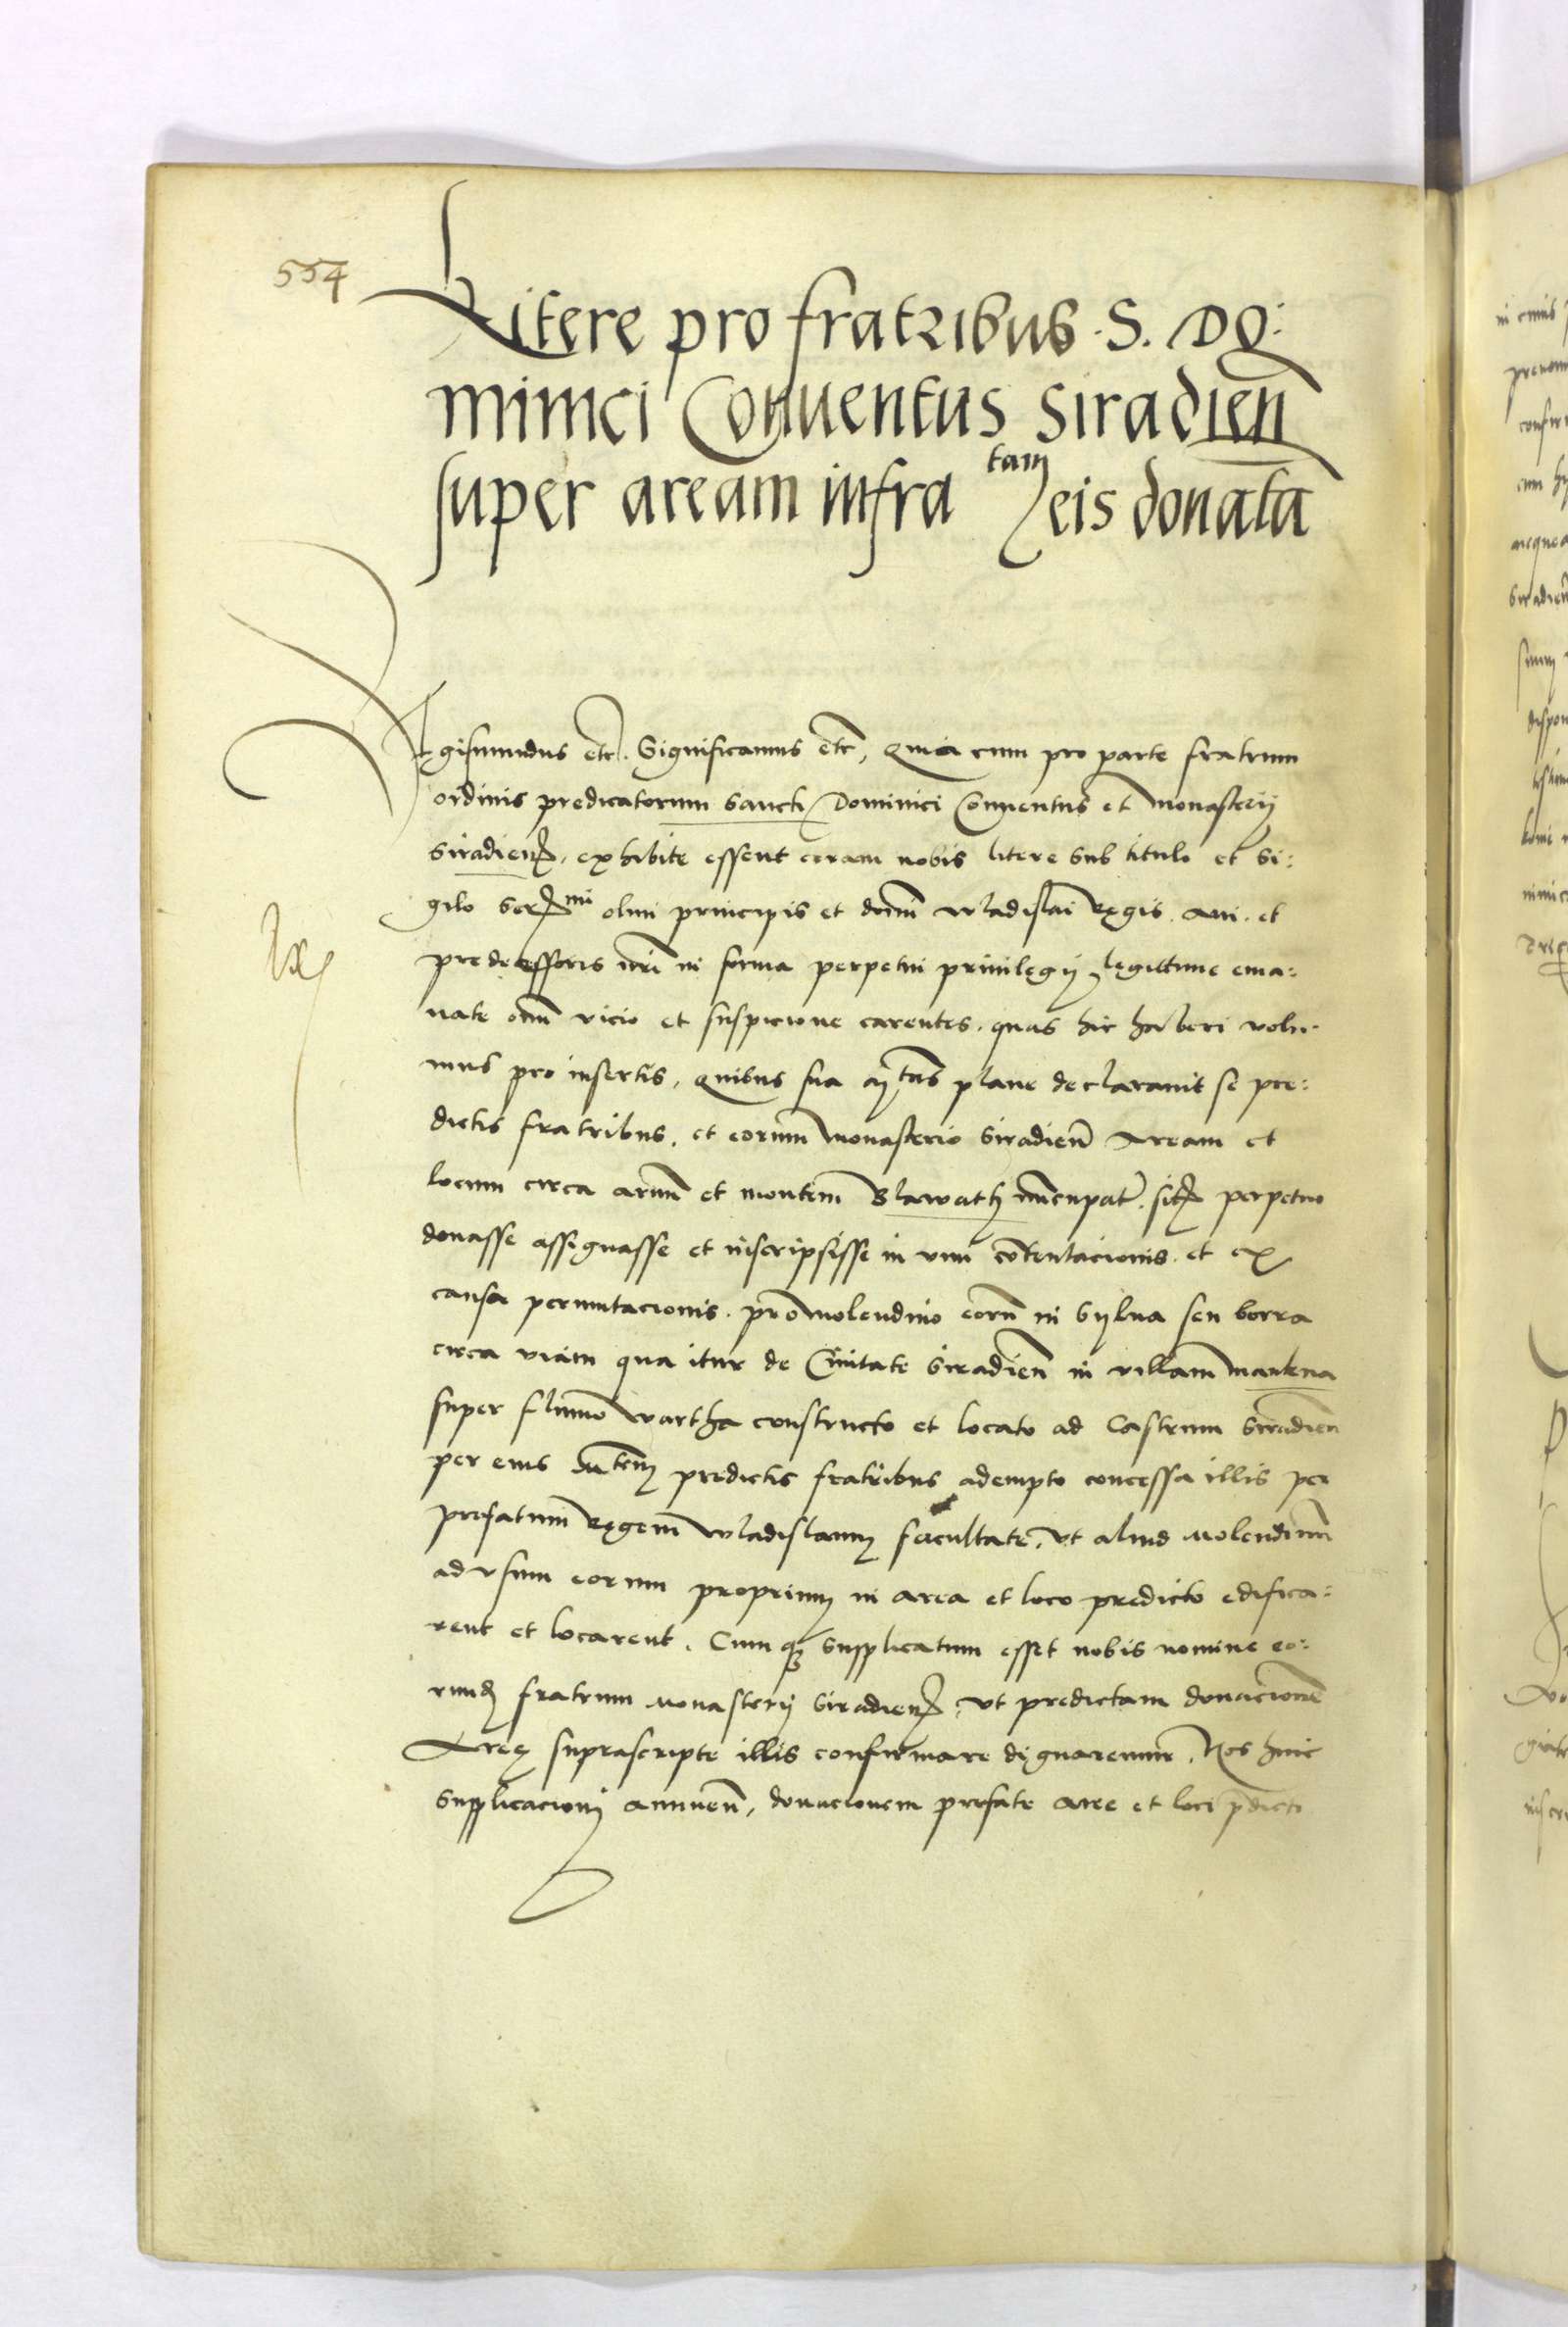 554
Litere pro fratribus S. Do:
minici Conuentus Siradien̄
super aream infra tam eis donatā
Sigismundus etc. Significamus etc, Quia cum pro parte fratrum
ordinis predicatorum Sancti Dominici Conuentus et Monasterii
Siradien, exhibite essent coram nobis litere sub titulo et Si:
gilo Sermi olim principis et dnm̄ Wladislai Regis aui et
predecessoris nrī in forma perpetui priuilegii legittime ema:
nate omī vicio et suspicione carentes, quas hic haberi volu:
mus pro insertis, Quibus sua Mtas plane declarauit se pre:
dictis fratribus, et eorum Monasterio Siradien̄ Aream et
locum circa et montem Slawath nuncupat. sit perpetuo
donasse assignasse et inscripsisse in vim cōtentacionis et ex
causa permutacionis pro Molendino eorū in Sylua seu borra
circa viam qua itur de Ciuitate Siradien̄ in villam
super flumō Wartha constructo et locato ad Castrum Siradien̄
per eius Mtem predictis fratribus adempto concessa illis per
prefatum Regem Wladislaum facultate, vt aliud Molendinū
ad vsum eorum proprium in area et loco predicto edifica:
rent et locarent. Cumq3 supplicatum esset nobis nomine eo:
rund fratrum Monasterii Siradien, vt predictam donacionē
Aree suprascripte illis confirmare dignaremur. Nos huic
supplicacioni annuen̄, donacionem prefate aree et loci p̄dicti